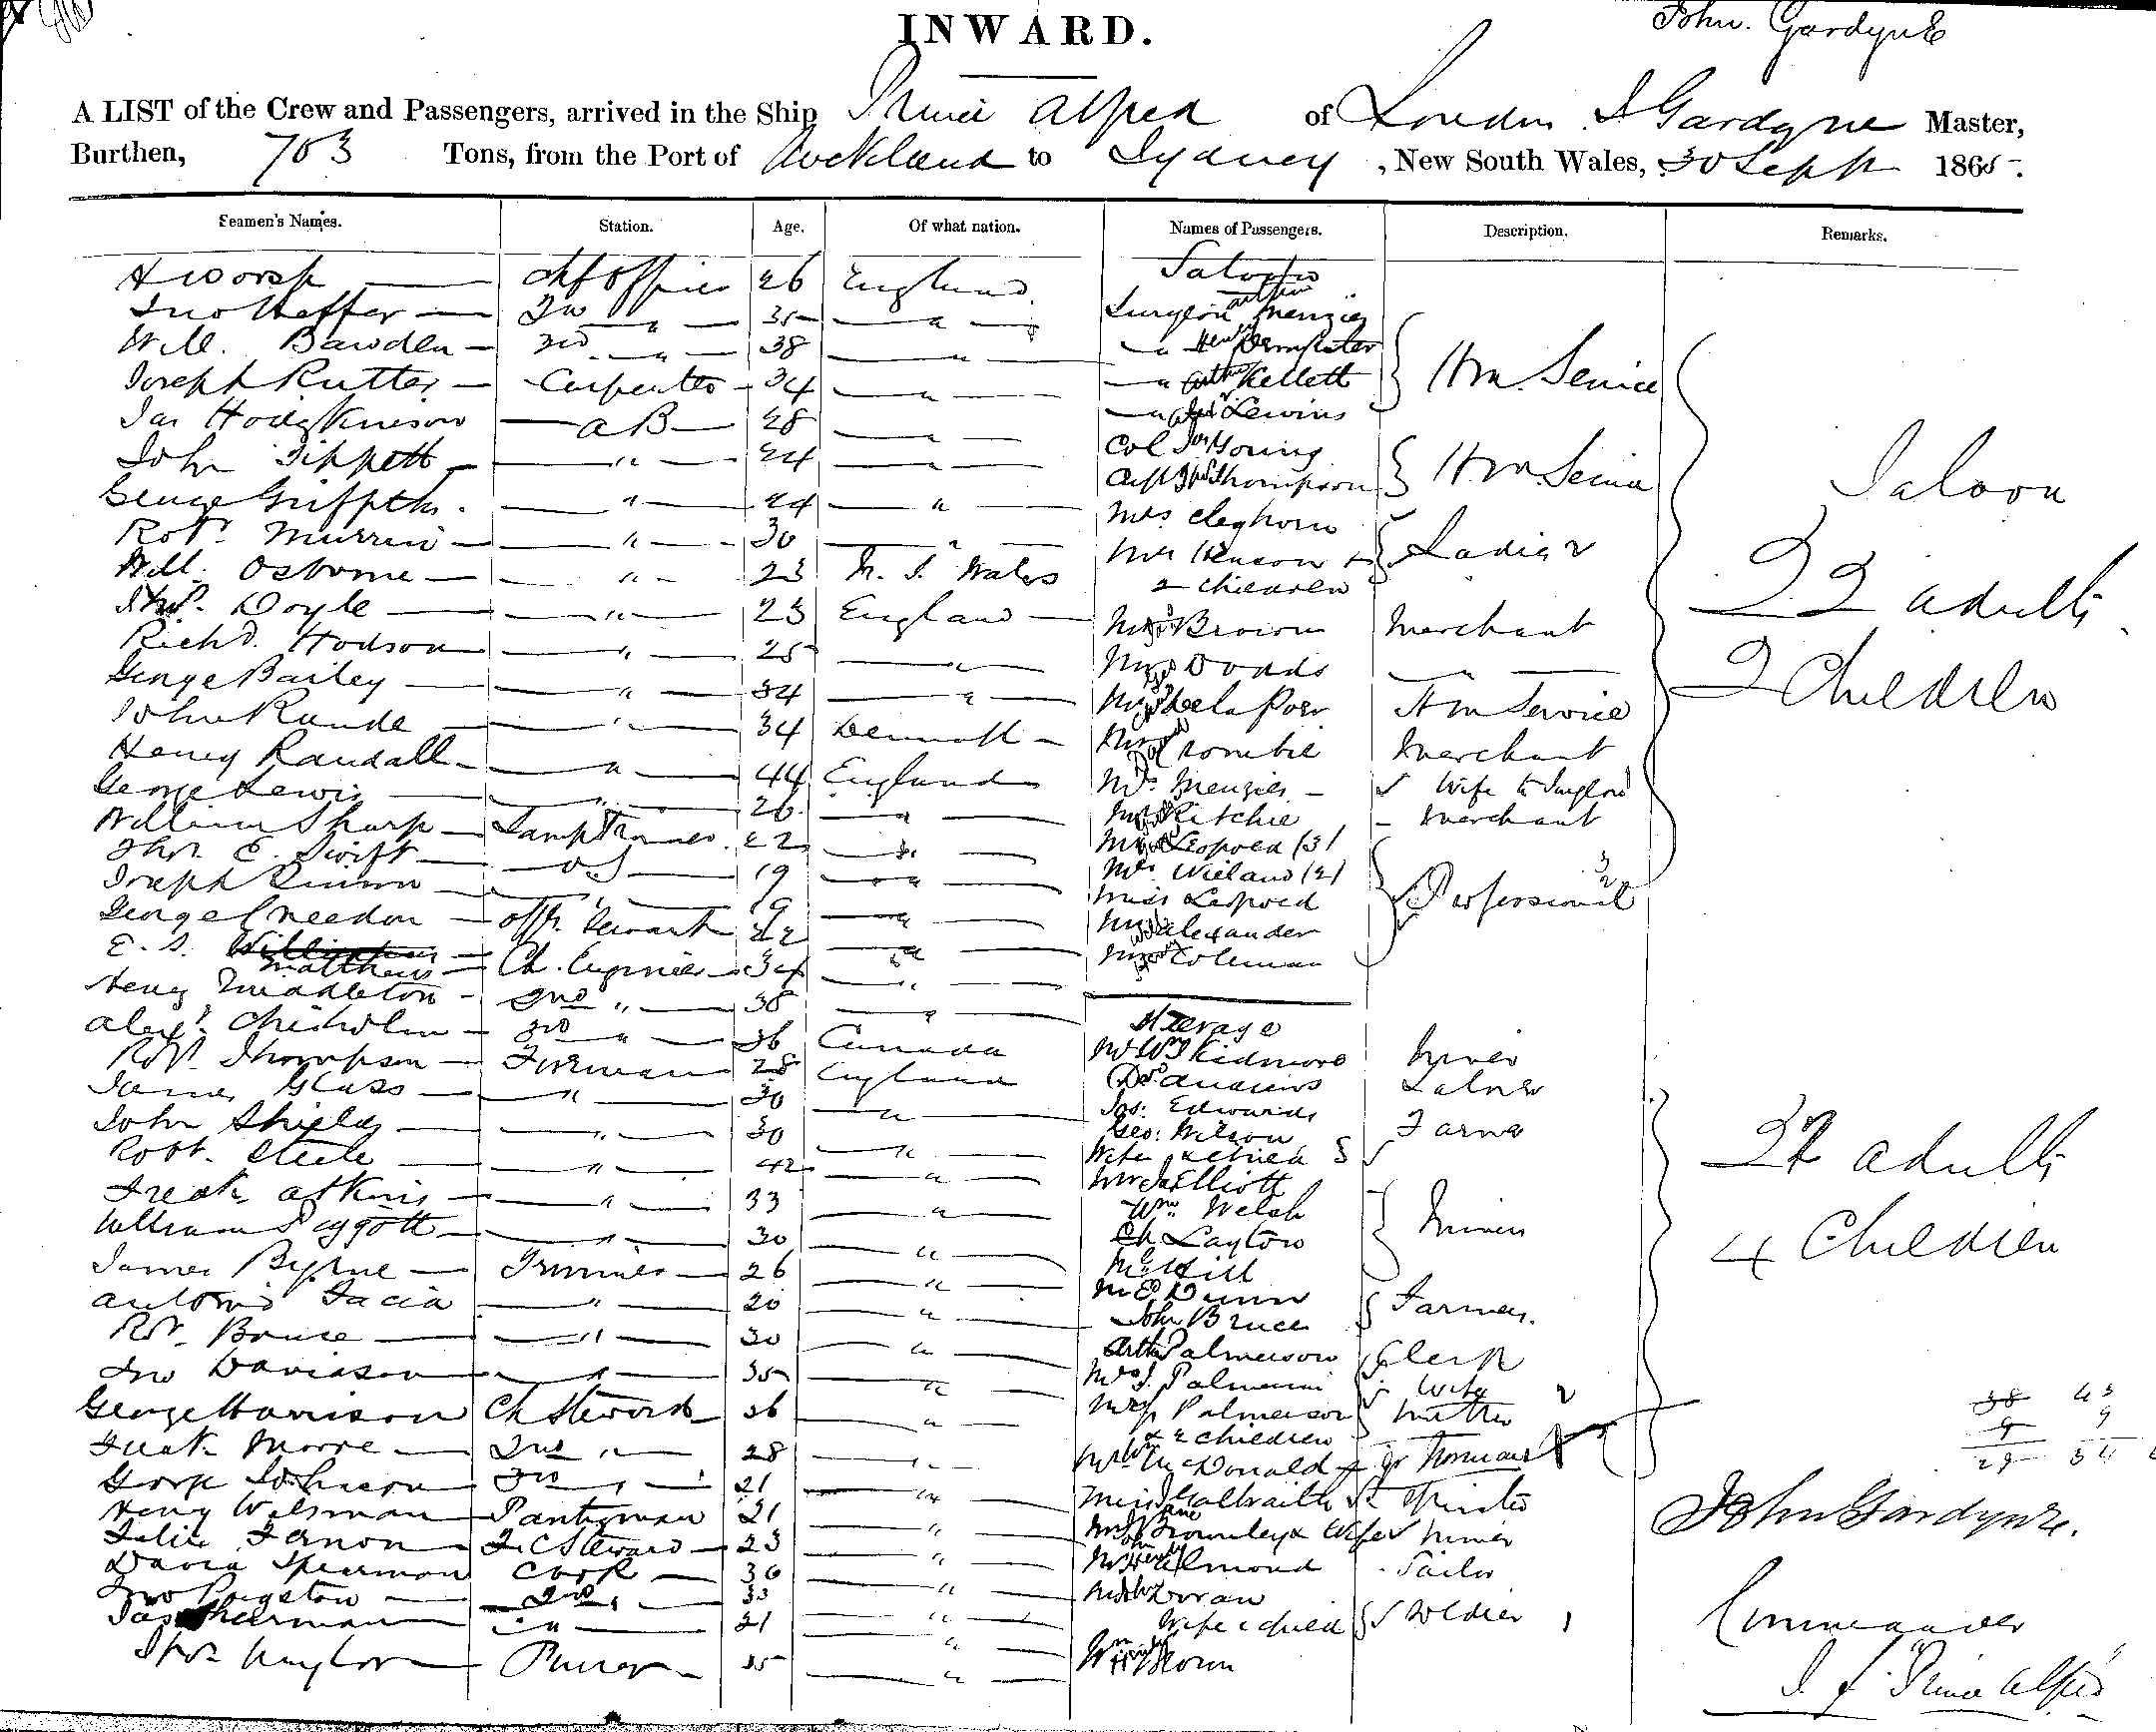 INWARD.
John. Gardyne
A LIST of the Crew and Passengers, arrived in the Ship Prince Alfred of London J Gardyne Master,
Burthen, 703 Tons, from the Port of Auckland to Sydney, New South Wales, 30 Sept 1865.
Seamen's Names. Station. Age. Of what nation. Names of Passengers. Description. Remarks.
Saloon
H Worsp Chf Officer 26 England Surgeon Menzies
Jno Heffer 2nd " 35 "
Will. Bawden 3rd " 38 " " Dempster
Joseph Rutter Carpenter 34 " " Kellett H M. Service
Jas Hodgkinson AB 28 " " Lewins
John Tippett " 24 " Col Jas Young
George Griffiths. " 24 " Capt Thompson H M. Service
Robt. Murrin " 30 " Mrs Cleghorn
Will. Osborne " 23 N. S. Wales Mrs Henson + Ladies
2 Children
Thos. Doyle " 23 England Mr Brown Merchant
Richd. Hodson " 25 " Mr Dodds "
George Bailey " 34 " Mr De la Poer H M Service
John Rande " 34 Denmark Mr Crombie Merchant
Henry Randall " 44 England Mrs. Menzies Wife to Surgeon
George Lewis " 26 " Mr Ritchie Merchant
William Sharp Lamp Trimmer 22 " Mr Leopold (3)
Thos. E. Swift OS 19 " Mr Wieland (2)
Joseph Quinn " 19 " Miss Leopold Professional
George Creedon Offr. Servant 22 " Mr Alexander
E. S. Matthews Ch. Engineer 34 " Mr Coleman
Saloon
22 adults
2 Children
Henry Middleton 2nd " 38 "
Steerage
Alexr. Chisholm 3rd " 36 Canada Mr Wm Skidmore Miner
Robt. Thompson Fireman 28 England Andrews Labrer
James Glass " 30 " Jas: Edwards
John Shields " 30 " Geo: Wilson Farmer
Robt. Steele " 42 " Wife & Child
Fredk. Atkins " 33 " Mr Jas Elliott
William Piggott " 30 " Wm. Welsh Miners
Ch Layton
James Byrne Trimmer 26 " Mr Hill
Antonio " 20 " Mr Ed Dunn
John Bruce Farmers.
Rt. Bruce " 30 " Palmerson Clerk
Jno Davidson " 35 " Mrs J. Palmerson Wife
George Harrison Ch Steward 36 " Palmerson Mother
& 2 children
Fredk. Moore 2nd " 28 " McDonald
George Johnson 3rd " 21 " Miss Galbraith Spinster
Henry Welsman Pantryman 21 " Brownley & Wife Miner
Felix Fernon F.C Steward 23 " Almond Tailor
David Spearman Cook 36 " Mr Jno Dorran
Jno Pongston 2nd " 33 " Wife & child Soldier
Jas Sherman " 21 "
Thos. Naylor Purser 35 " Wm Brown
32 adults
4 Children
38 45
9 9
29 54
John Gardyne.
Commander
S. S. Prince Alfred